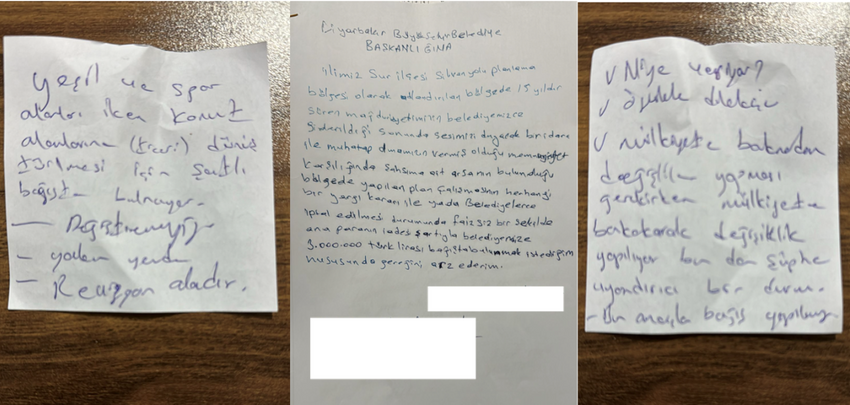 yeşil ve spor
alanları iken konut
alanlarına (ticari) dönüş
türülmesi için şartlı
bağışta bulunuyor.
— Değiştiremeyiz
— yapılan yerde
— Rezervasyon alanıdır.
Diyarbakır Büyükşehir Belediye
BAŞKANLIĞINA
İlimiz Sur ilçesi Silvan yolu planlama
bölgesi olarak adlandırılan bölgede 15 yıldır
süren mağduriyetimizin belediyenizce
giderildiği sonunda sesimizi duyacak bir idare
ile muhatap olmamızın vermiş olduğu memnuniyet
karşılığında şahsıma ait arsanın bulunduğu
bölgede yapılan plan çalışmasının herhangi
bir yargı kararı ile yada Belediyelerce
iptal edilmesi durumunda faizsiz bir şekilde
ana paranın iadesi şartıyla belediyenize
3.000.000 türk lirası bağışta bulunmak istediğim
hususunda gereğini arz ederim.
✓ Niye veriyor?
✓ özellikle dilekçe
✓ mülkiyete bakmadan
değişiklik yapması
gerekirken mülkiyete
bakarak değişiklik
yapılıyor bu da şüphe
uyandırıcı bir durum.
- Bu amaçla bağış yapılmış